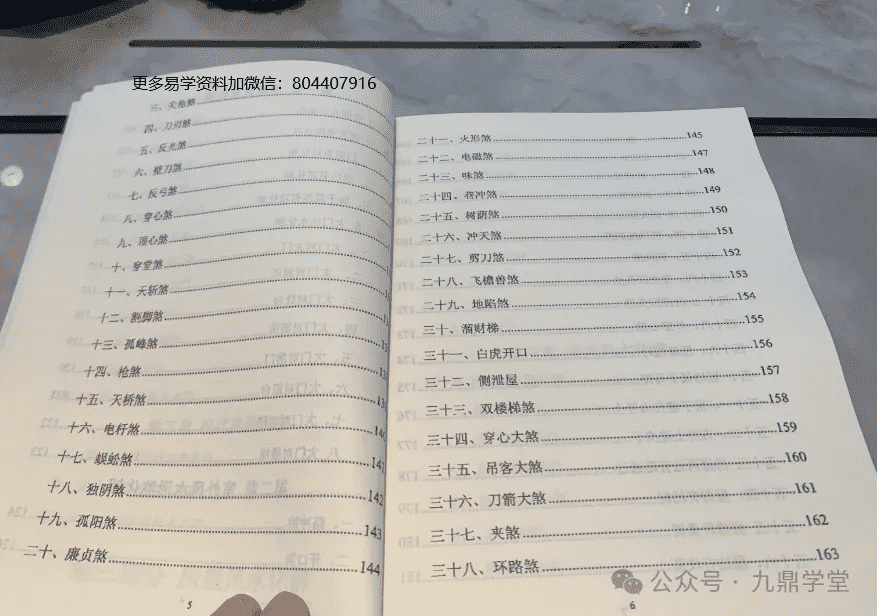 更多易学资料加微信：804407916
三、尖角煞
四、刀刃煞
五、反光煞
六、壁刀煞
七、反弓煞
八、穿心煞
九、顶心煞
十、穿堂煞
十一、天斩煞
十二、割脚煞
十三、孤峰煞
十四、枪煞
十五、天桥煞
十六、电杆煞 140
十七、蜈蚣煞 141
十八、独阴煞 142
十九、孤阳煞 143
二十、廉贞煞 144
5
二十一、火形煞 145
二十二、电磁煞 147
二十三、味煞 148
二十四、巷冲煞 149
二十五、树荫煞 150
二十六、冲天煞 151
二十七、剪刀煞 152
二十八、飞檐兽煞 153
二十九、地陷煞 154
三十、溜财梯 155
三十一、白虎开口 156
三十二、侧泄屋 157
三十三、双楼梯煞 158
三十四、穿心大煞 159
三十五、吊客大煞 160
三十六、刀箭大煞 161
三十七、夹煞 162
三十八、环路煞 163
6
公众号·九鼎学堂